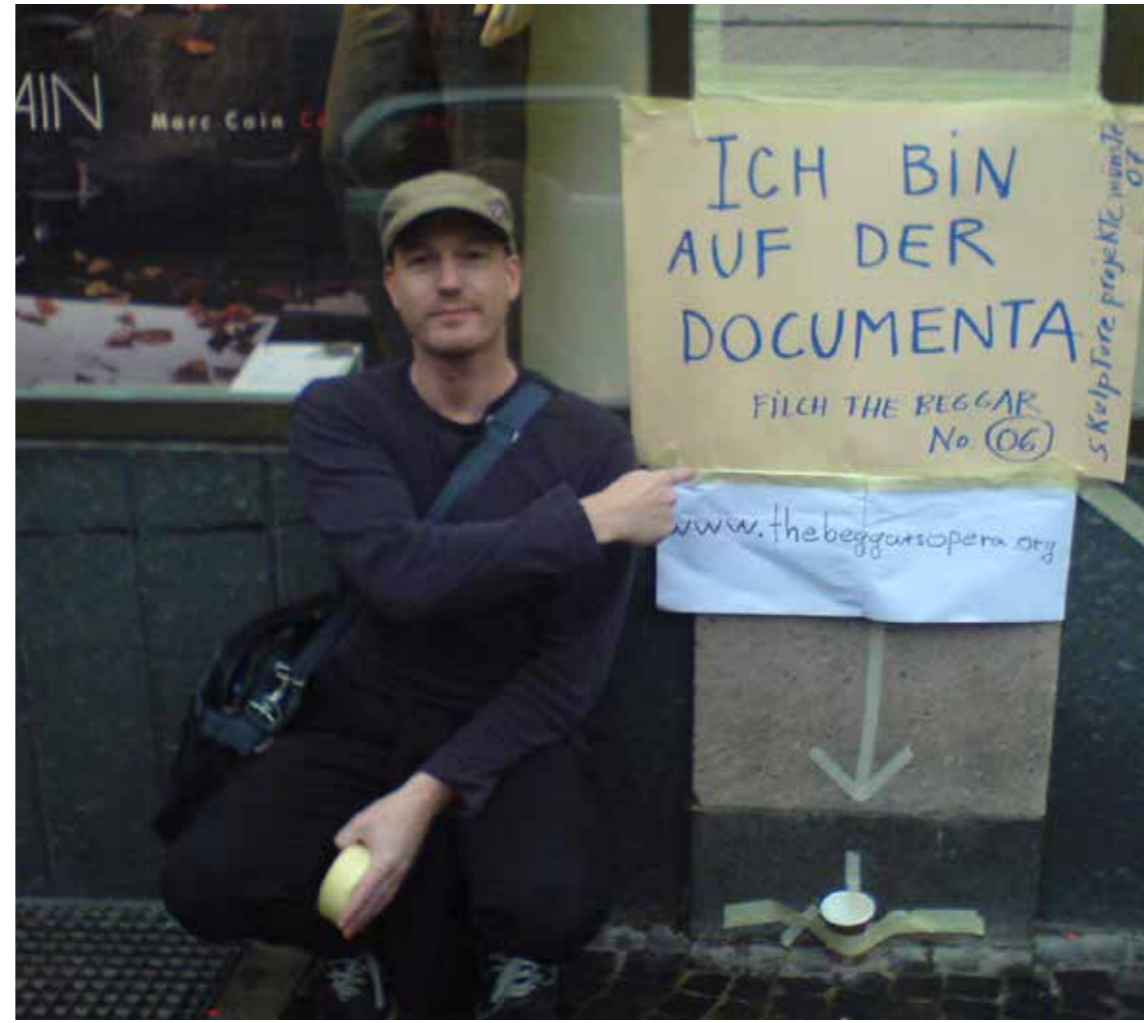 AIN
Marc Cain
ICH BIN
AUF DER
DOCUMENTA
FILCH THE BEGGAR
No. 06
skulpTure projekte münsTe
07
www.thebeggarsopera.org